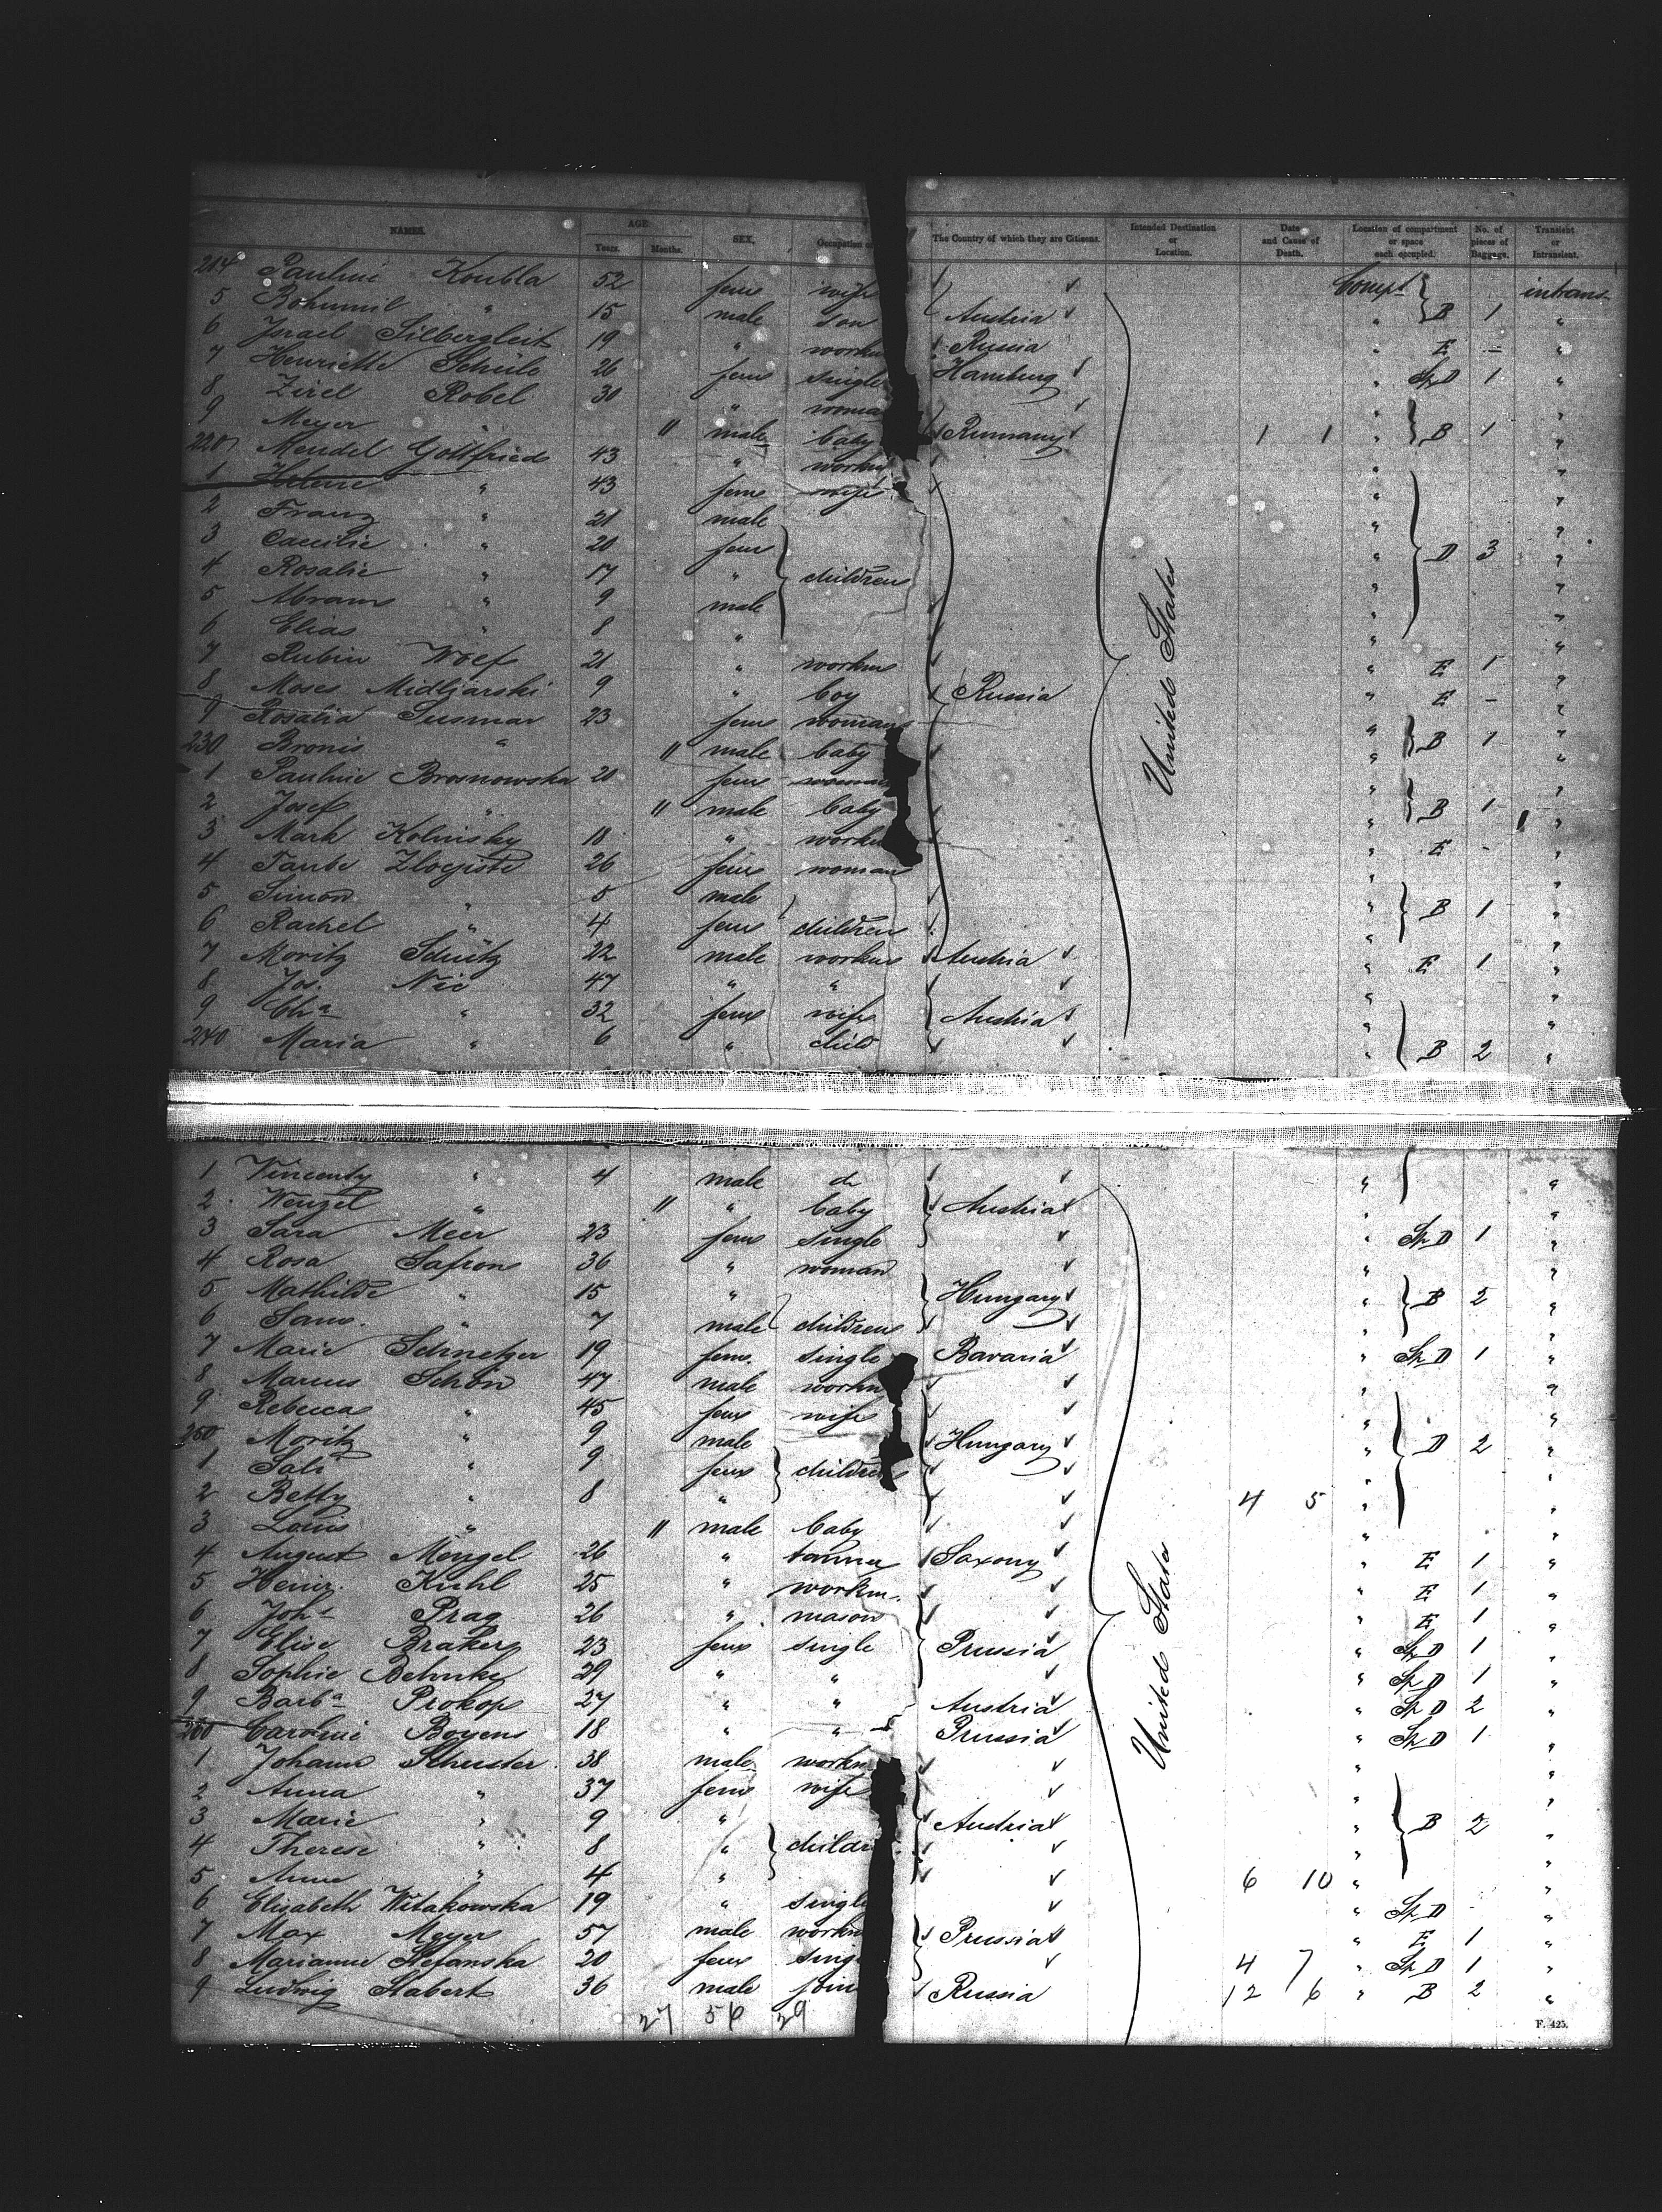 NAMES. AGE. Years. Months. SEX. Occupation The Country of which they are Citizens. Intended Destination or Location. Date and Cause of Death. Location of compartment or space each occupied. No. of pieces of Baggage. Transient or Intransient.
214 Pauline Koubla 52 fem wife Compt intrans
5 Bohumil " 15 male son Austria " B 1 "
6 Israel Silbergleit 19 " Russia " E - "
7 Henriette Schüle 26 fem single Hamburg " Sp D 1 "
8 Zirel Robel 30 " "
9 Meyer " 11 male baby Rumany 1 1 " B 1 "
220 Mendel Gottfried 43 " workm "
1 Helene " 43 fem wife "
2 Franz " 21 male "
3 Caecilie " 20 fem " D 3 "
4 Rosalie " 17 " children "
5 Abram " 9 male "
6 Elias " 8 " "
7 Rubin Wolf 21 " workm " E 1 "
8 Moses Midljarski 9 " boy Russia " E - "
9 Rosalia Susmar 23 fem woman "
230 Bronis " 11 male baby " B 1 "
1 Pauline Brosnowska 20 fem woman "
2 Josef " 11 male baby " B 1 "
3 Mark Kolnisky 18 " " E - "
4 Taube 26 fem woman "
5 Simon " 5 male "
6 Rachel " 4 fem children " B 1 "
7 Moritz Schütz 22 male workm Austria " E 1 "
8 Jos. Nic 47 " " "
9 " 32 fem wife Austria "
240 Maria " 6 " child " B 2 "
United States
1 Vincenty " 4 male do " "
2 Wenzel " 11 " baby Austria " "
3 Sara Meer 23 fem single " Sp D 1 "
4 Rosa Safron 36 " woman " "
5 Mathilde " 15 " Hungary " B 2 "
6 Sam. " 7 male children "
7 Marie Schnetzer 19 fem. single Bavaria " Sp D 1 "
8 Marcus Schön 47 male workm " "
9 Rebecca " 45 fem wife " "
250 Moritz " 9 male Hungary " D 2 "
1 Sali " 9 fem children " "
2 Betty " 8 " 4 5 " "
3 Louis " 11 male baby " "
4 August Mengel 26 " tanner Saxony " E 1 "
5 Heinr. Kuhl 25 " workm. " E 1 "
6 Joh. Prag 26 " mason " E 1 "
7 Elise Brakers 23 fem single Prussia " Sp D 1 "
8 Sophie Behnke 29 " " " Sp D 1 "
9 Barba Prokop 27 " " Austria " Sp D 2 "
260 Caroline Boyens 18 " " Prussia " Sp D 1 "
1 Johann Schuster 38 male workm " "
2 Anna " 37 fem wife " "
3 Marie " 9 " Austria " B 2 "
4 Therese " 8 " " "
5 Anna " 4 " 6 10 " "
6 Elisabeth Witakowska 19 " single " Sp D "
7 Max Meyer 57 male workm Prussia " E 1 "
8 Marianne Stefanska 20 fem 4 7 " Sp D 1 "
9 Ludwig Habert 36 male Russia 12 6 " B 2 "
United States
27 56 29
F. 425.